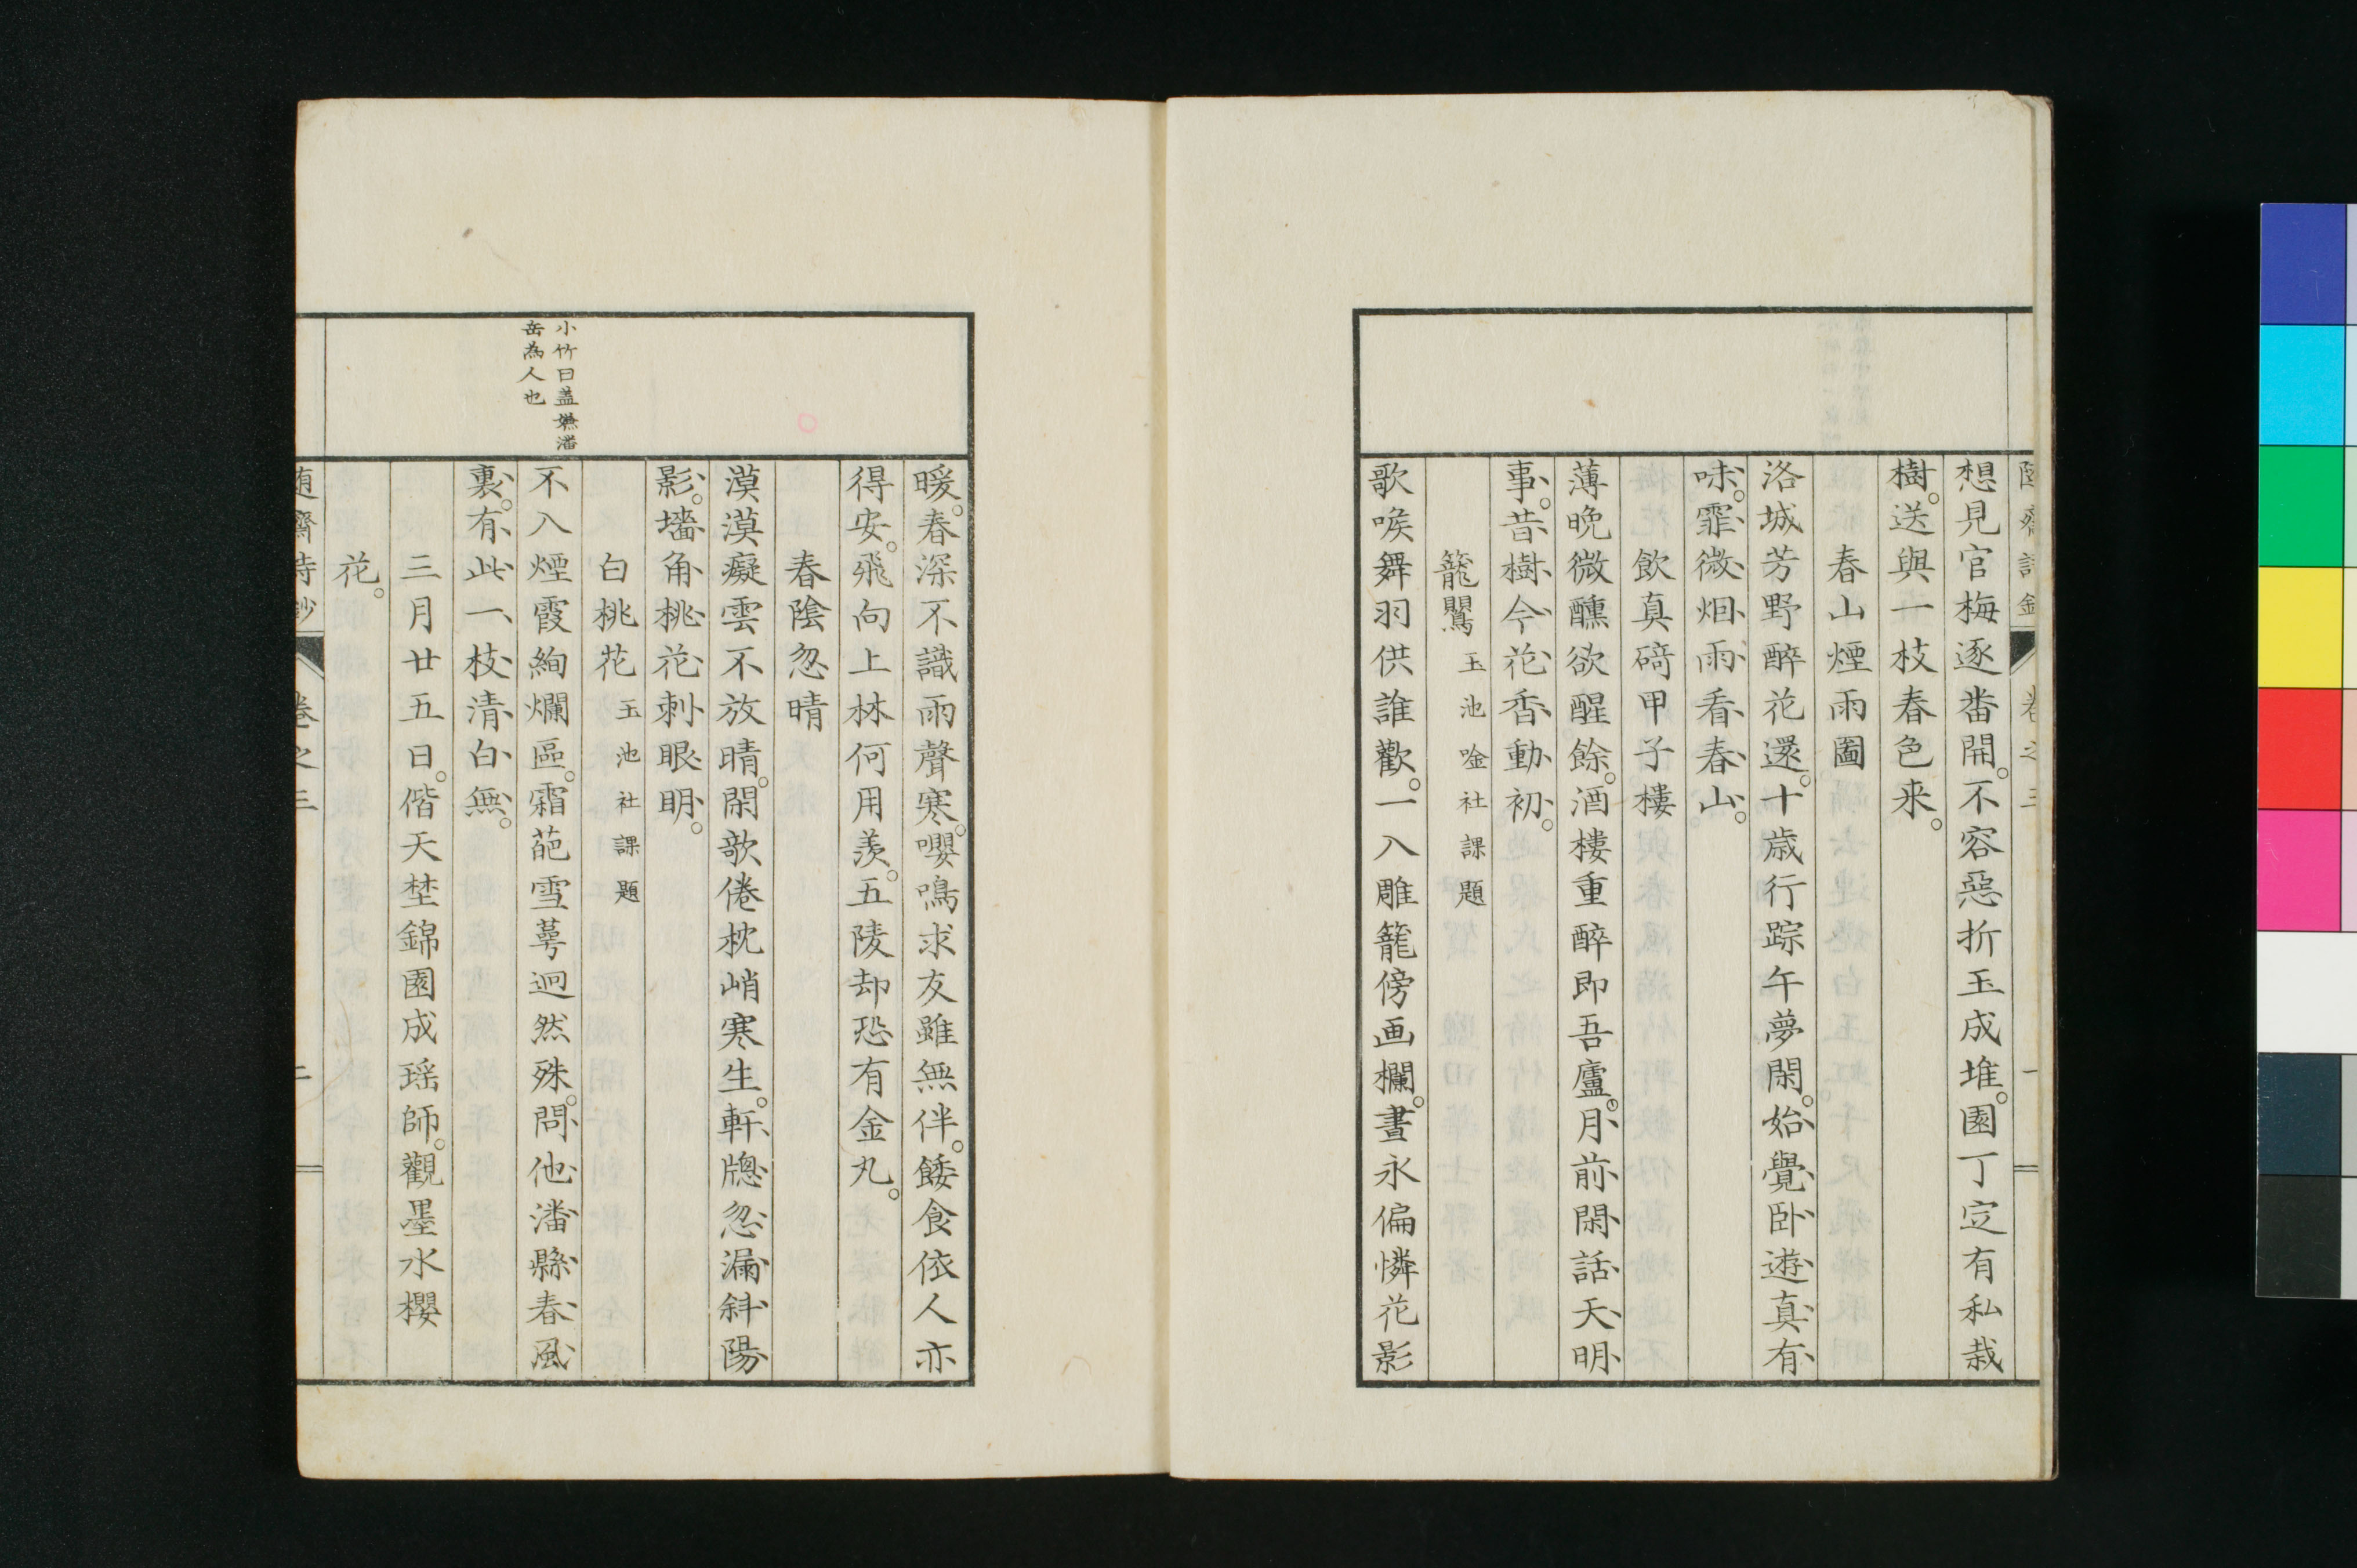 想見官梅逐畨開。不容惡折玉成堆。園丁定有私栽
樹。送與一枝春色来。
春山煙雨圖
洛城芳野醉花還。十歳行踪午夢閑。始覺卧遊真有
味。霏微烟雨看春山。
飲真碕甲子樓
薄晩微醺欲醒餘。酒樓重醉即吾廬。月前閑話天明
事。昔樹今花香動初。
籠鸎 玉池唫社課題
歌喉舞羽供誰歡。一入雕籠傍画欄。晝永偏憐花影
暖。春深不識雨聲寒。嚶鳴求友雖無伴。餧食依人亦
得安。飛向上林何用羨。五陵却恐有金丸。
春陰忽晴
漠漠癡雲不放晴。閑欹倦枕峭寒生。軒牕忽漏斜陽
影。墻角桃花刺眼明。
白桃花 玉池社課題
不入煙霞絢爛區。霜葩雪萼迥然殊。問他潘縣春風
裏。有此一枝清白無。
小竹曰蓋嫌潘
岳為人也
三月廿五日。偕天埜錦園成瑶師。觀墨水櫻
花。
卷之三